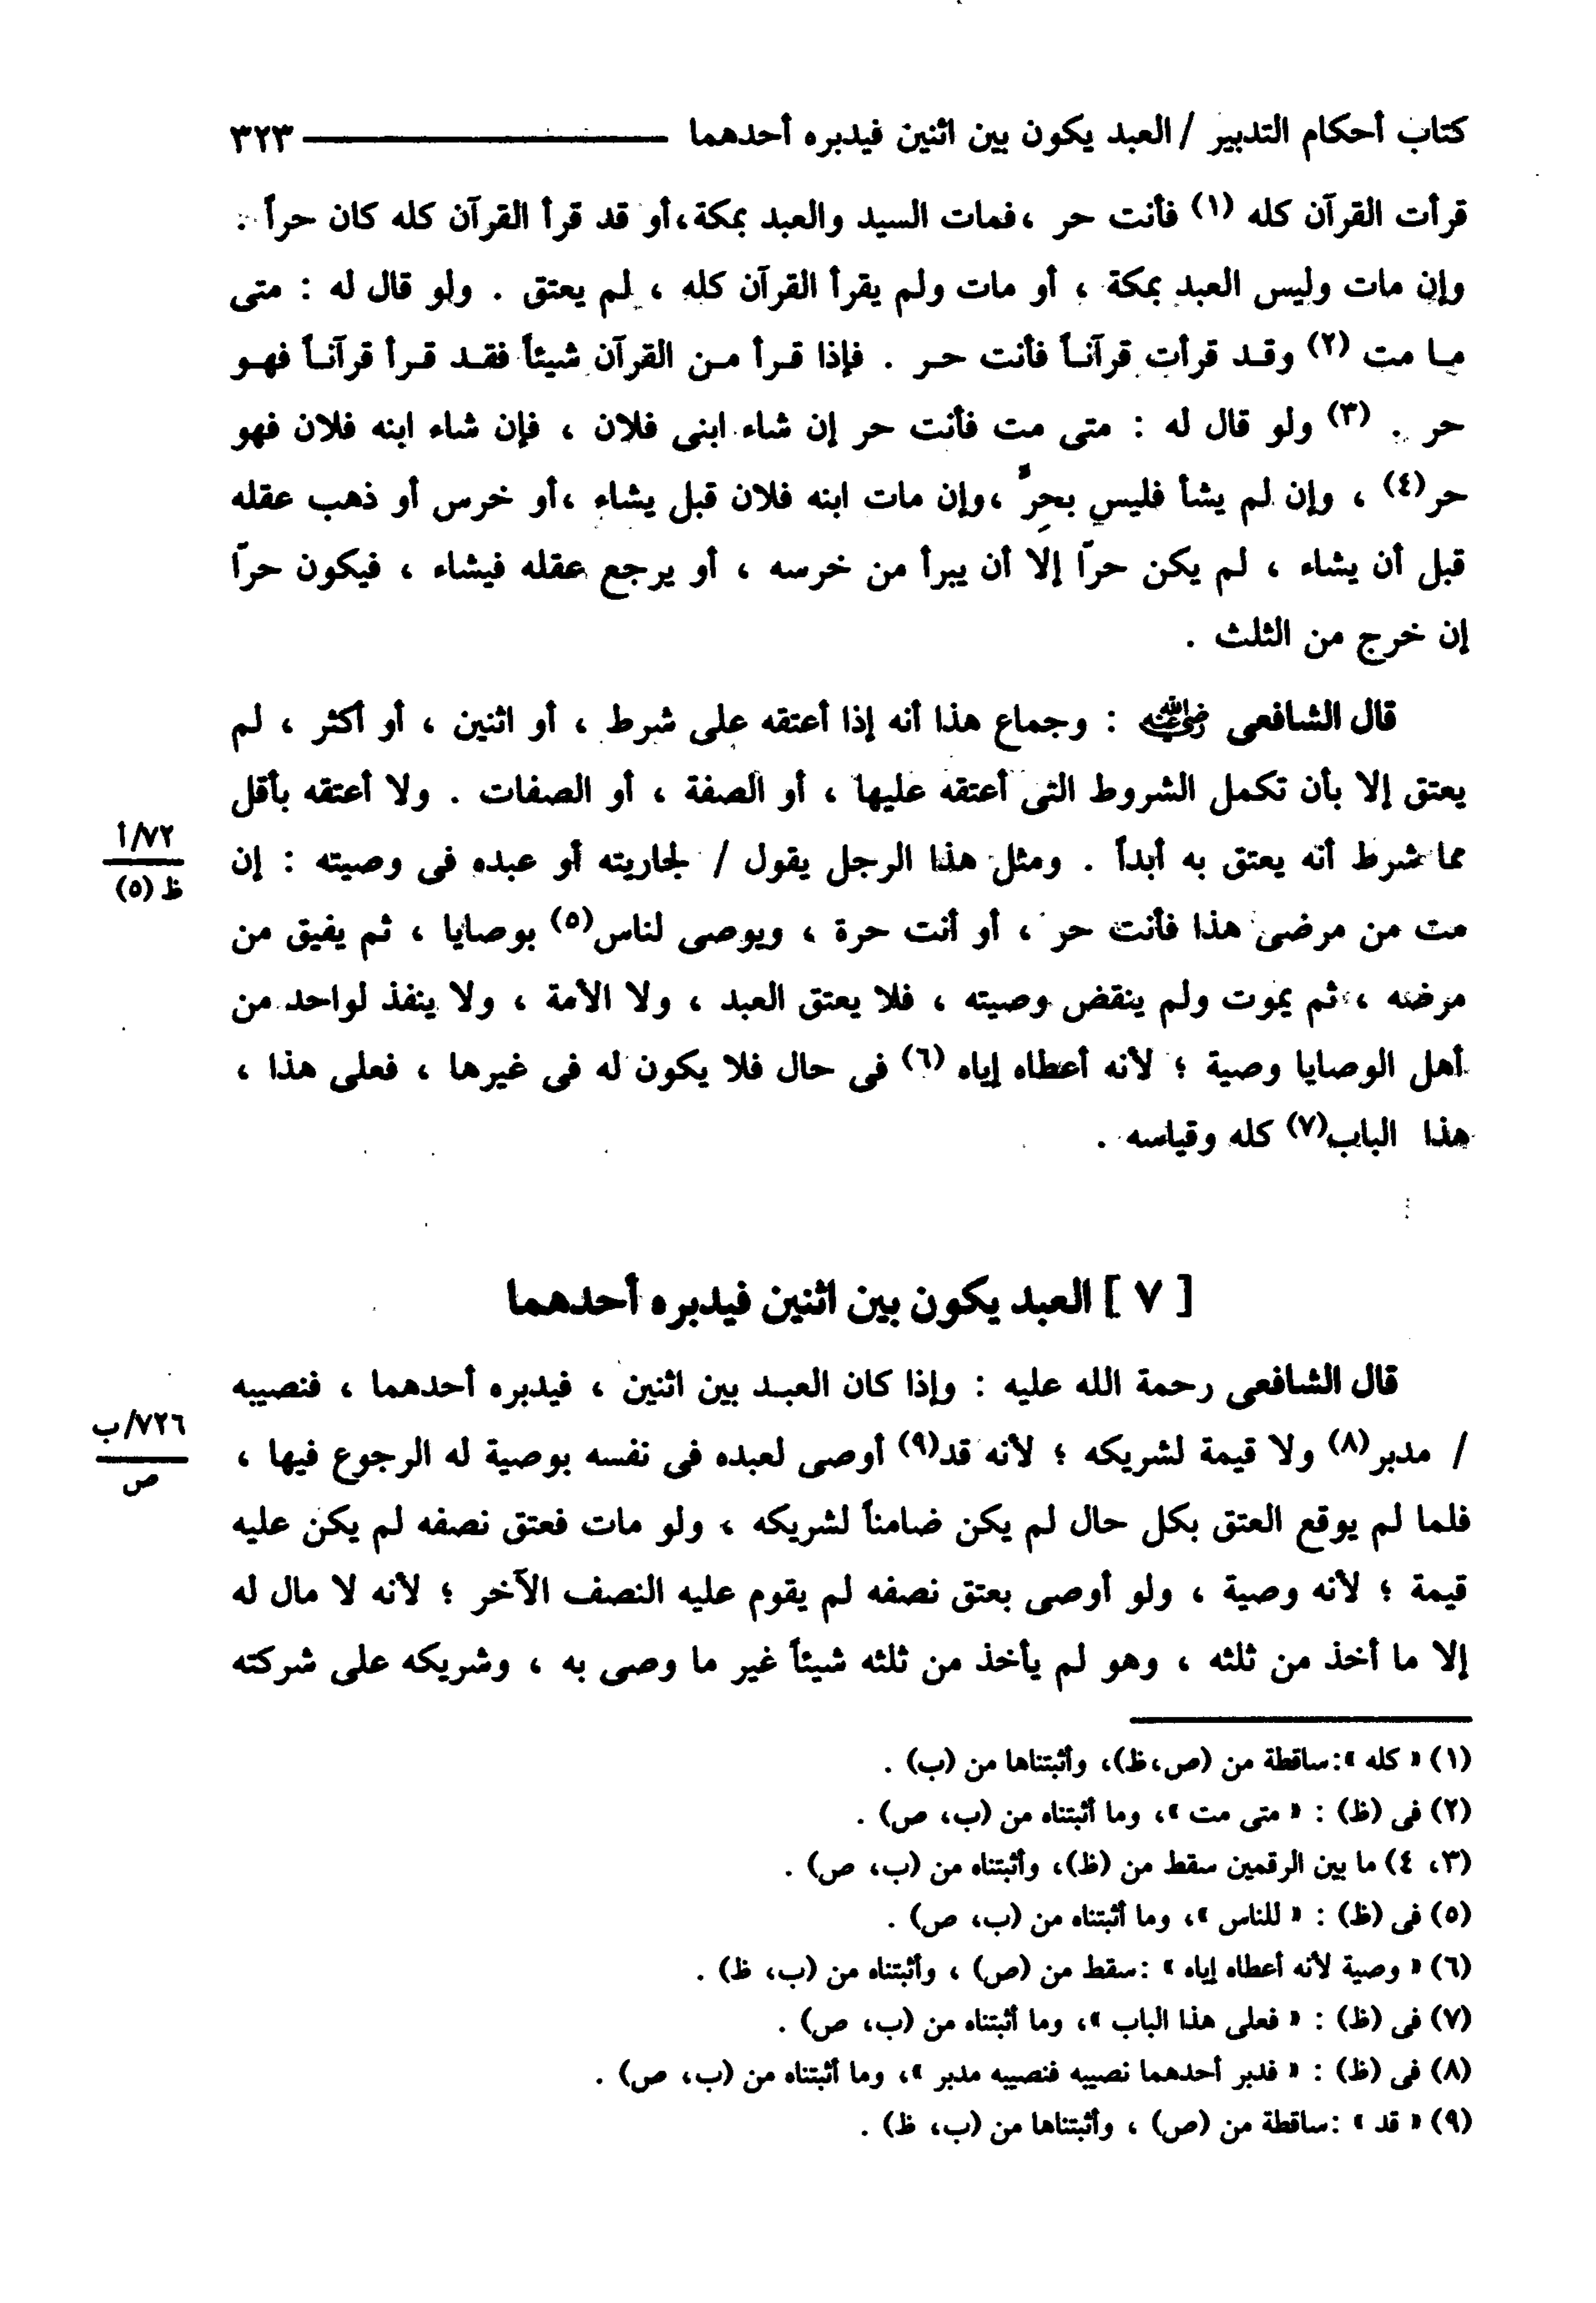 كتاب أحكام التدبير / العبد يكون بين اثنين فيدبره أحدهما ٣٢٣
قرأت القرآن كله (١) فأنت حر ، فمات السيد والعبد بمكة ، أو قد قرأ القرآن كله كان حراً .
وإن مات وليس العبد بمكة ، أو مات ولم يقرأ القرآن كله ، لم يعتق . ولو قال له : متى
ما مت (٢) وقد قرأت قرآناً فأنت حر . فإذا قرأ من القرآن شيئاً فقد قرأ قرآناً فهو
حر . (٣) ولو قال له : متى مت فأنت حر إن شاء ابنى فلان ، فإن شاء ابنه فلان فهو
حر(٤) ، وإن لم يشأ فليس بحرٍّ ، وإن مات ابنه فلان قبل يشاء ، أو خرس أو ذهب عقله
قبل أن يشاء ، لم يكن حرّا إلا أن يبرأ من خرسه ، أو يرجع عقله فيشاء ، فيكون حرّا
إن خرج من الثلث .
قال الشافعى رضي الله عنه : وجماع هذا أنه إذا أعتقه على شرط ، أو اثنين ، أو أكثر ، لم
يعتق إلا بأن تكمل الشروط التى أعتقه عليها ، أو الصفة ، أو الصفات . ولا أعتقه بأقل
مما شرط أنه يعتق به أبداً . ومثل هذا الرجل يقول / لجاريته أو عبده فى وصيته : إن
٧٢/أ
ظ (٥)
مت من مرضى هذا فأنت حر ، أو أنت حرة ، ويوصى لناس(٥) بوصايا ، ثم يفيق من
مرضه ، ثم يموت ولم ينقض وصيته ، فلا يعتق العبد ، ولا الأمة ، ولا ينفذ لواحد من
أهل الوصايا وصية ؛ لأنه أعطاه إياه (٦) فى حال فلا يكون له فى غيرها ، فعلى هذا ،
هذا الباب(٧) كله وقياسه .
[ ٧ ] العبد يكون بين اثنين فيدبره أحدهما
قال الشافعى رحمة الله عليه : وإذا كان العبد بين اثنين ، فيدبره أحدهما ، فنصيبه
٧٢٦/ب
ص
/ مدبر(٨) ولا قيمة لشريكه ؛ لأنه قد(٩) أوصى لعبده فى نفسه بوصية له الرجوع فيها ،
فلما لم يوقع العتق بكل حال لم يكن ضامناً لشريكه ، ولو مات فعتق نصفه لم يكن عليه
قيمة ؛ لأنه وصية ، ولو أوصى بعتق نصفه لم يقوم عليه النصف الآخر ؛ لأنه لا مال له
إلا ما أخذ من ثلثه ، وهو لم يأخذ من ثلثه شيئاً غير ما وصى به ، وشريكه على شركته
(١) « كله »: ساقطة من (ص، ظ)، وأثبتناها من (ب) .
(٢) فى (ظ) : « متى مت »، وما أثبتناه من (ب، ص) .
(٣، ٤) ما بين الرقمين سقط من (ظ)، وأثبتناه من (ب، ص) .
(٥) فى (ظ) : « للناس »، وما أثبتناه من (ب، ص) .
(٦) « وصية لأنه أعطاه إياه » : سقط من (ص) ، وأثبتناه من (ب، ظ) .
(٧) فى (ظ) : « فعلى هذا الباب »، وما أثبتناه من (ب، ص) .
(٨) فى (ظ) : « فدبر أحدهما نصيبه فنصيبه مدبر »، وما أثبتناه من (ب، ص) .
(٩) « قد » : ساقطة من (ص) ، وأثبتناها من (ب، ظ) .